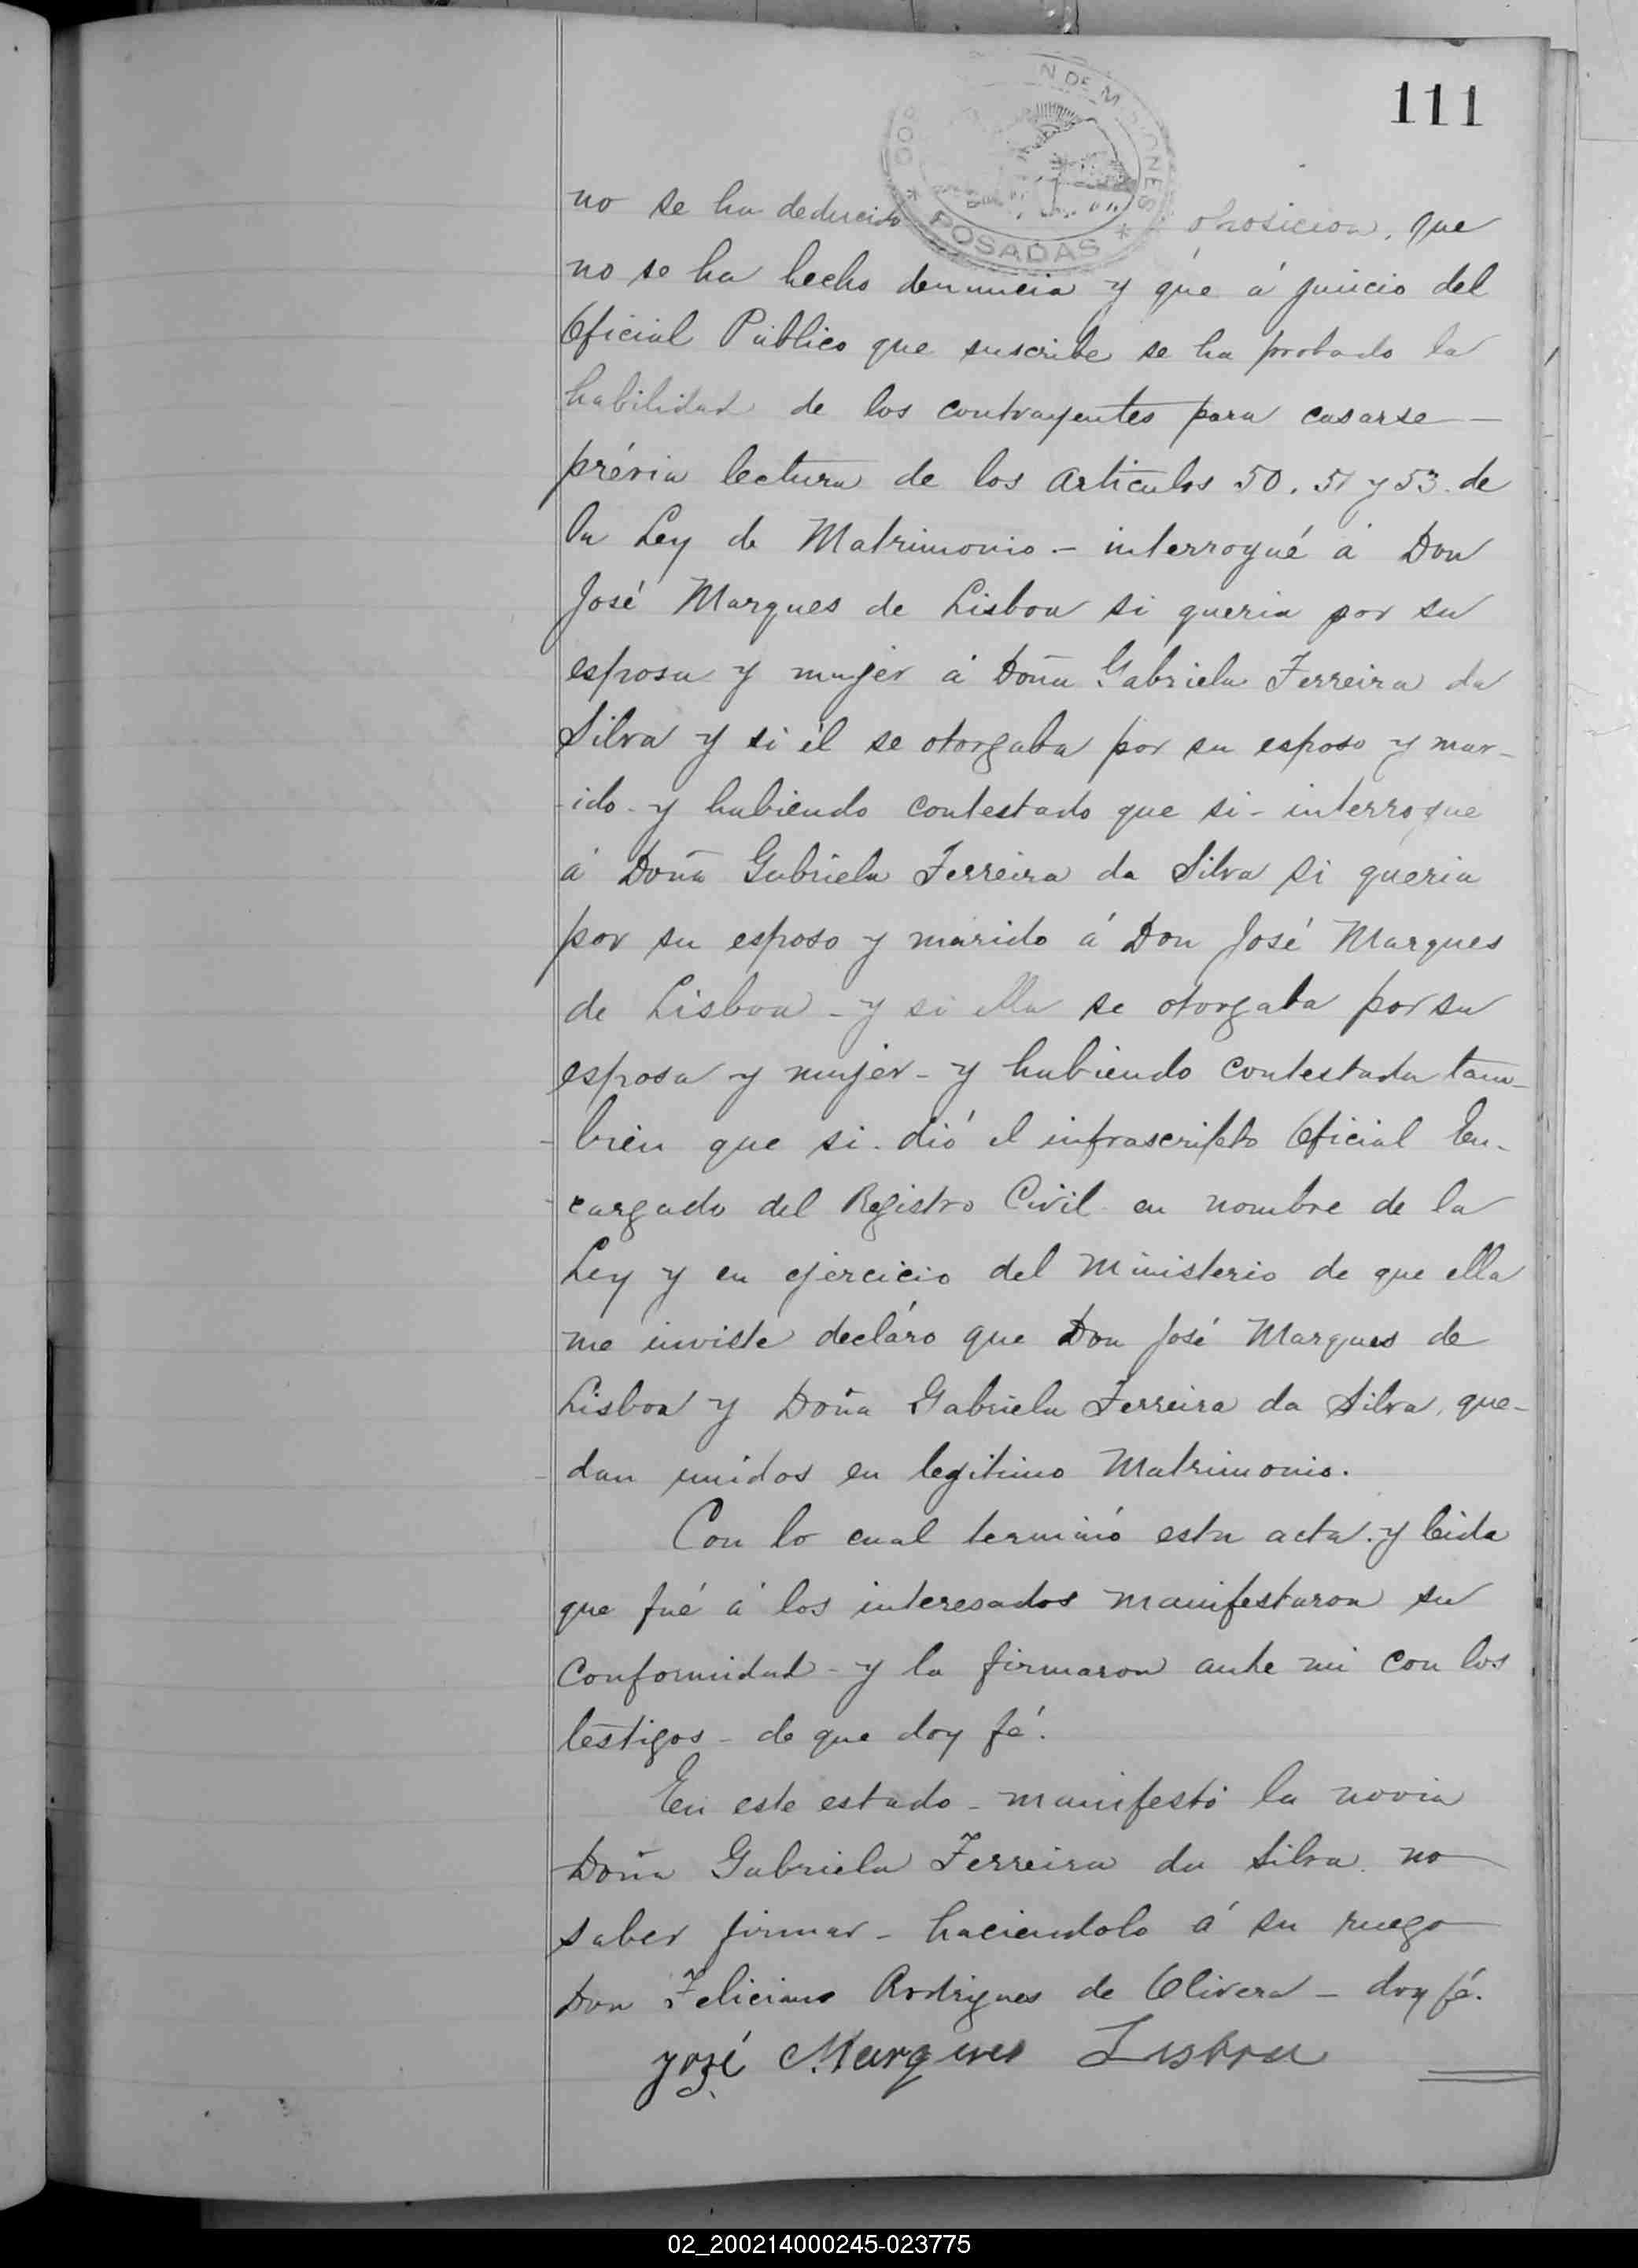 111
N DE MISIONES
* POSADAS *
no se ha deducido oposicion, que
no se ha hecho denuncia y que á juicio del
Oficial Publico que suscribe se ha probado la
habilidad de los contrayentes para casarse —
prévia lectura de los articulos 50, 51 y 53 de
la Ley de Matrimonio - interrogué á Don
José Marques de Lisboa si queria por su
esposa y mujer á Doña Gabriela Ferreira da
Silva y si él se otorgaba por su esposo y mar-
-ido - y habiendo contestado que si - interrogue
á Doña Gabriela Ferreira da Silva si queria
por su esposo y marido á Don José Marques
de Lisboa - y si ella se otorgaba por su
esposa y mujer - y habiendo contestada tam-
-bien que si - dió el infrascripto Oficial En-
-cargado del Registro Civil en nombre de la
Ley y en ejercicio del Ministerio de que ella
me inviste decláro que Don José Marques de
Lisboa y Doña Gabriela Ferreira da Silva, que-
-dan unidos en legitimo Matrimonio.
Con lo cual terminó esta acta y leida
que fué á los interesados manifestaron su
conformidad - y la firmaron ante mi con los
testigos - de que doy fé.
En este estado - manifestó la novia
Doña Gabriela Ferreira da Silva no
saber firmar - haciendolo á su ruego
Don Feliciano Rodrigues de Olivera - doy fé.
José Marques Lisboa
02_200214000245-023775